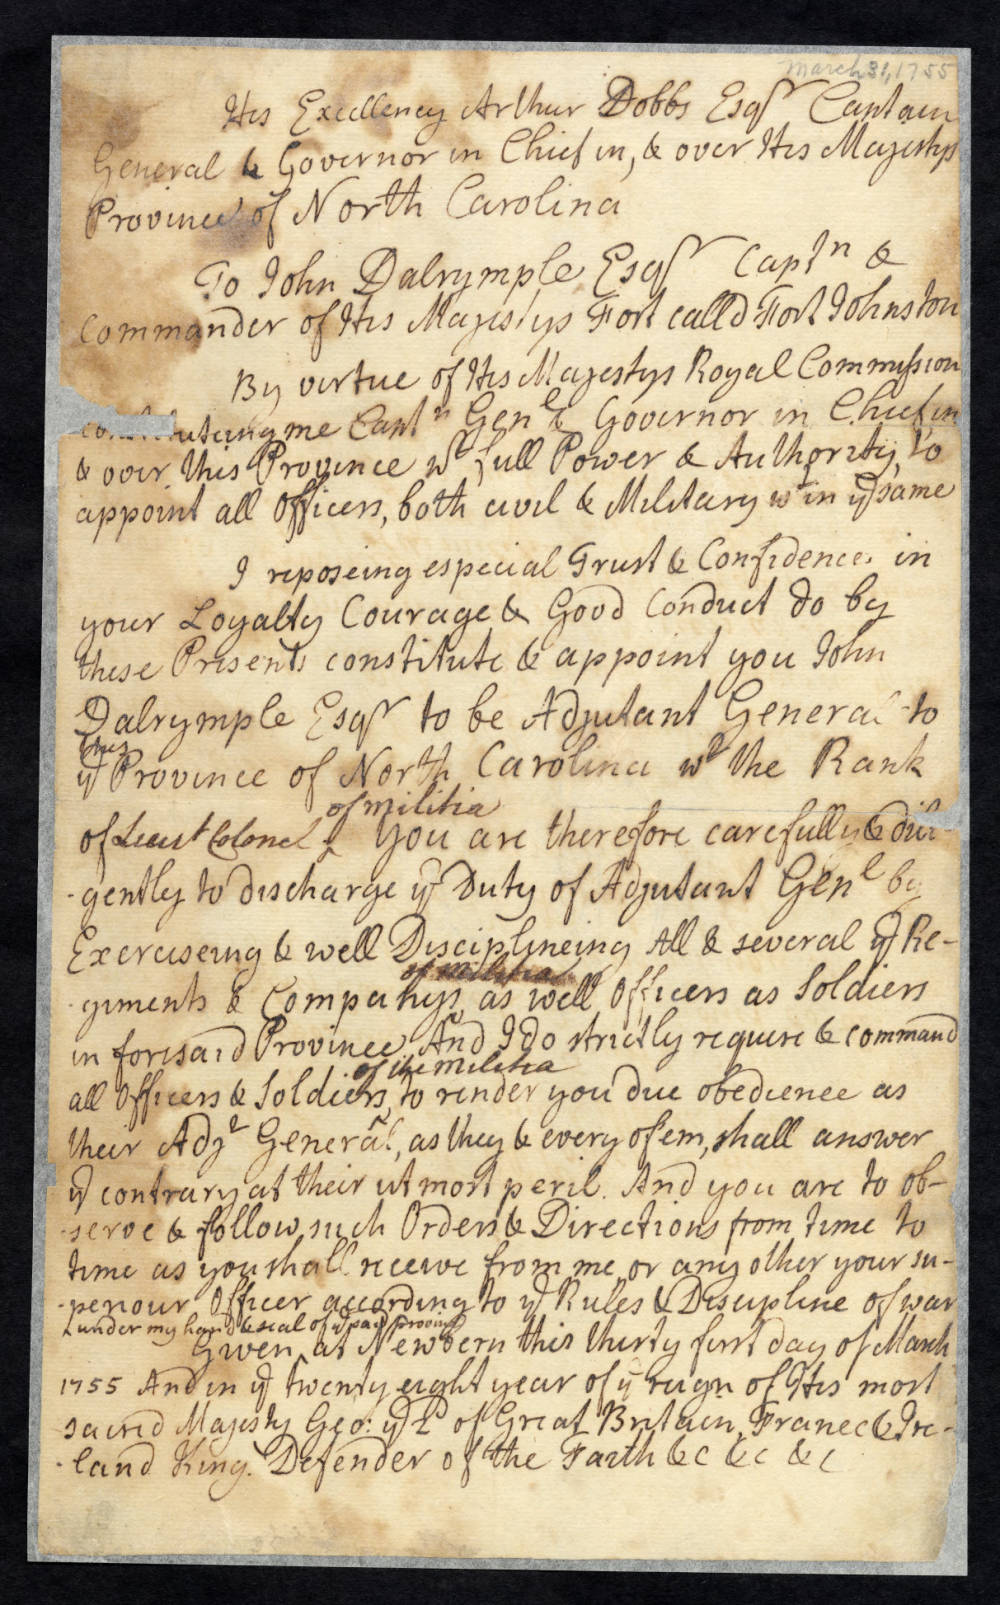 March 31, 1755
His Excellency Arthur Dobbs Esqr Captain
General & Governor in Chief in, & over His Majestys
Province of North Carolina
To John Dalrymple Esqr Captn &
Commander of His Majestys Fort calld Fort Johnston
By virtue of His Majestys Royal Commission
constituteing me Captn Genl & Governor in Chief in
& over this Province wt full Power & Authority, to
appoint all Officers, both civil & Military wtin ye same
I reposeing especial Trust & Confidence in
your Loyalty Courage & Good Conduct do by
these Presents constitute & appoint you John
Dalrymple Esqr to be Adjutant General to
this
ye Province of North Carolina wt the Rank
of militia
of Lieut Colonel ^ You are therefore carefully & dili-
-gently to discharge ye Duty of Adjutant Genl by
Exerciseing & well Disciplineing All & several ye Re-
of militia
-giments & Companys, as well Officers as Soldiers
in foresaid Province And I do strictly require & command
of the militia
all Officers & Soldiers, to render you due obedience as
their Adjt General, as they & every of em, shall answer
ye contrary at their utmost peril. And you are to ob-
-serve & follow such Orders & Directions from time to
time as you shall receive from me or any other your su-
-periour Officer according to ye Rules & Discipline of war
under my hand & seal of ye province
Given at Newbern this thirty first day of March
1755 And in ye twenty eight year of ye reign of His most
sacred Majesty Geo: ye 2d of Great Britain, France & Ire-
-land King. Defender of the Faith &c &c &c